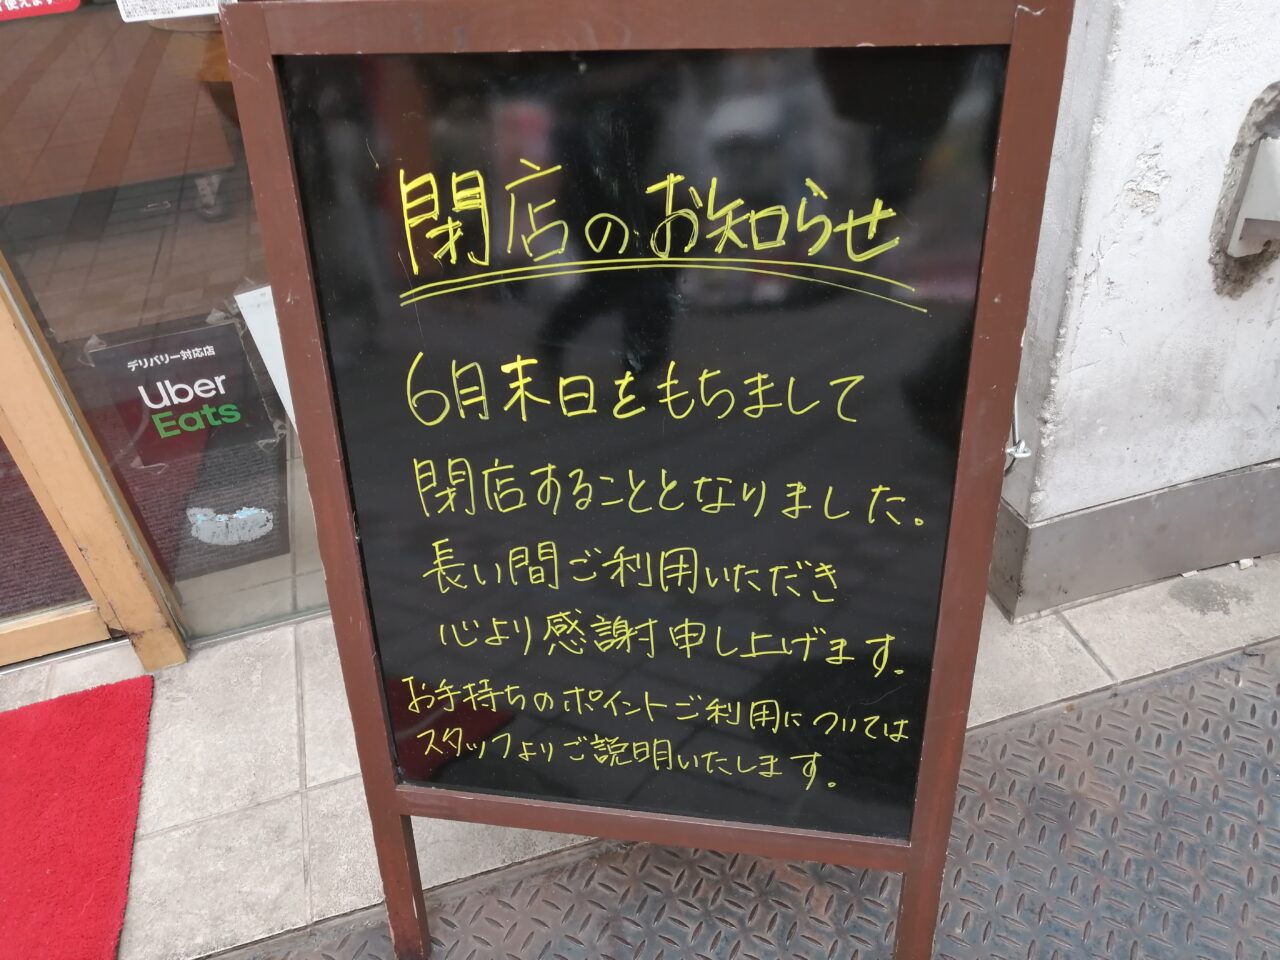 使えます
デリバリー対応店
Uber
Eats
閉店のお知らせ
6月末日をもちまして
閉店することとなりました。
長い間ご利用いただき
心より感謝申し上げます。
お手持ちのポイントご利用については
スタッフよりご説明いたします。